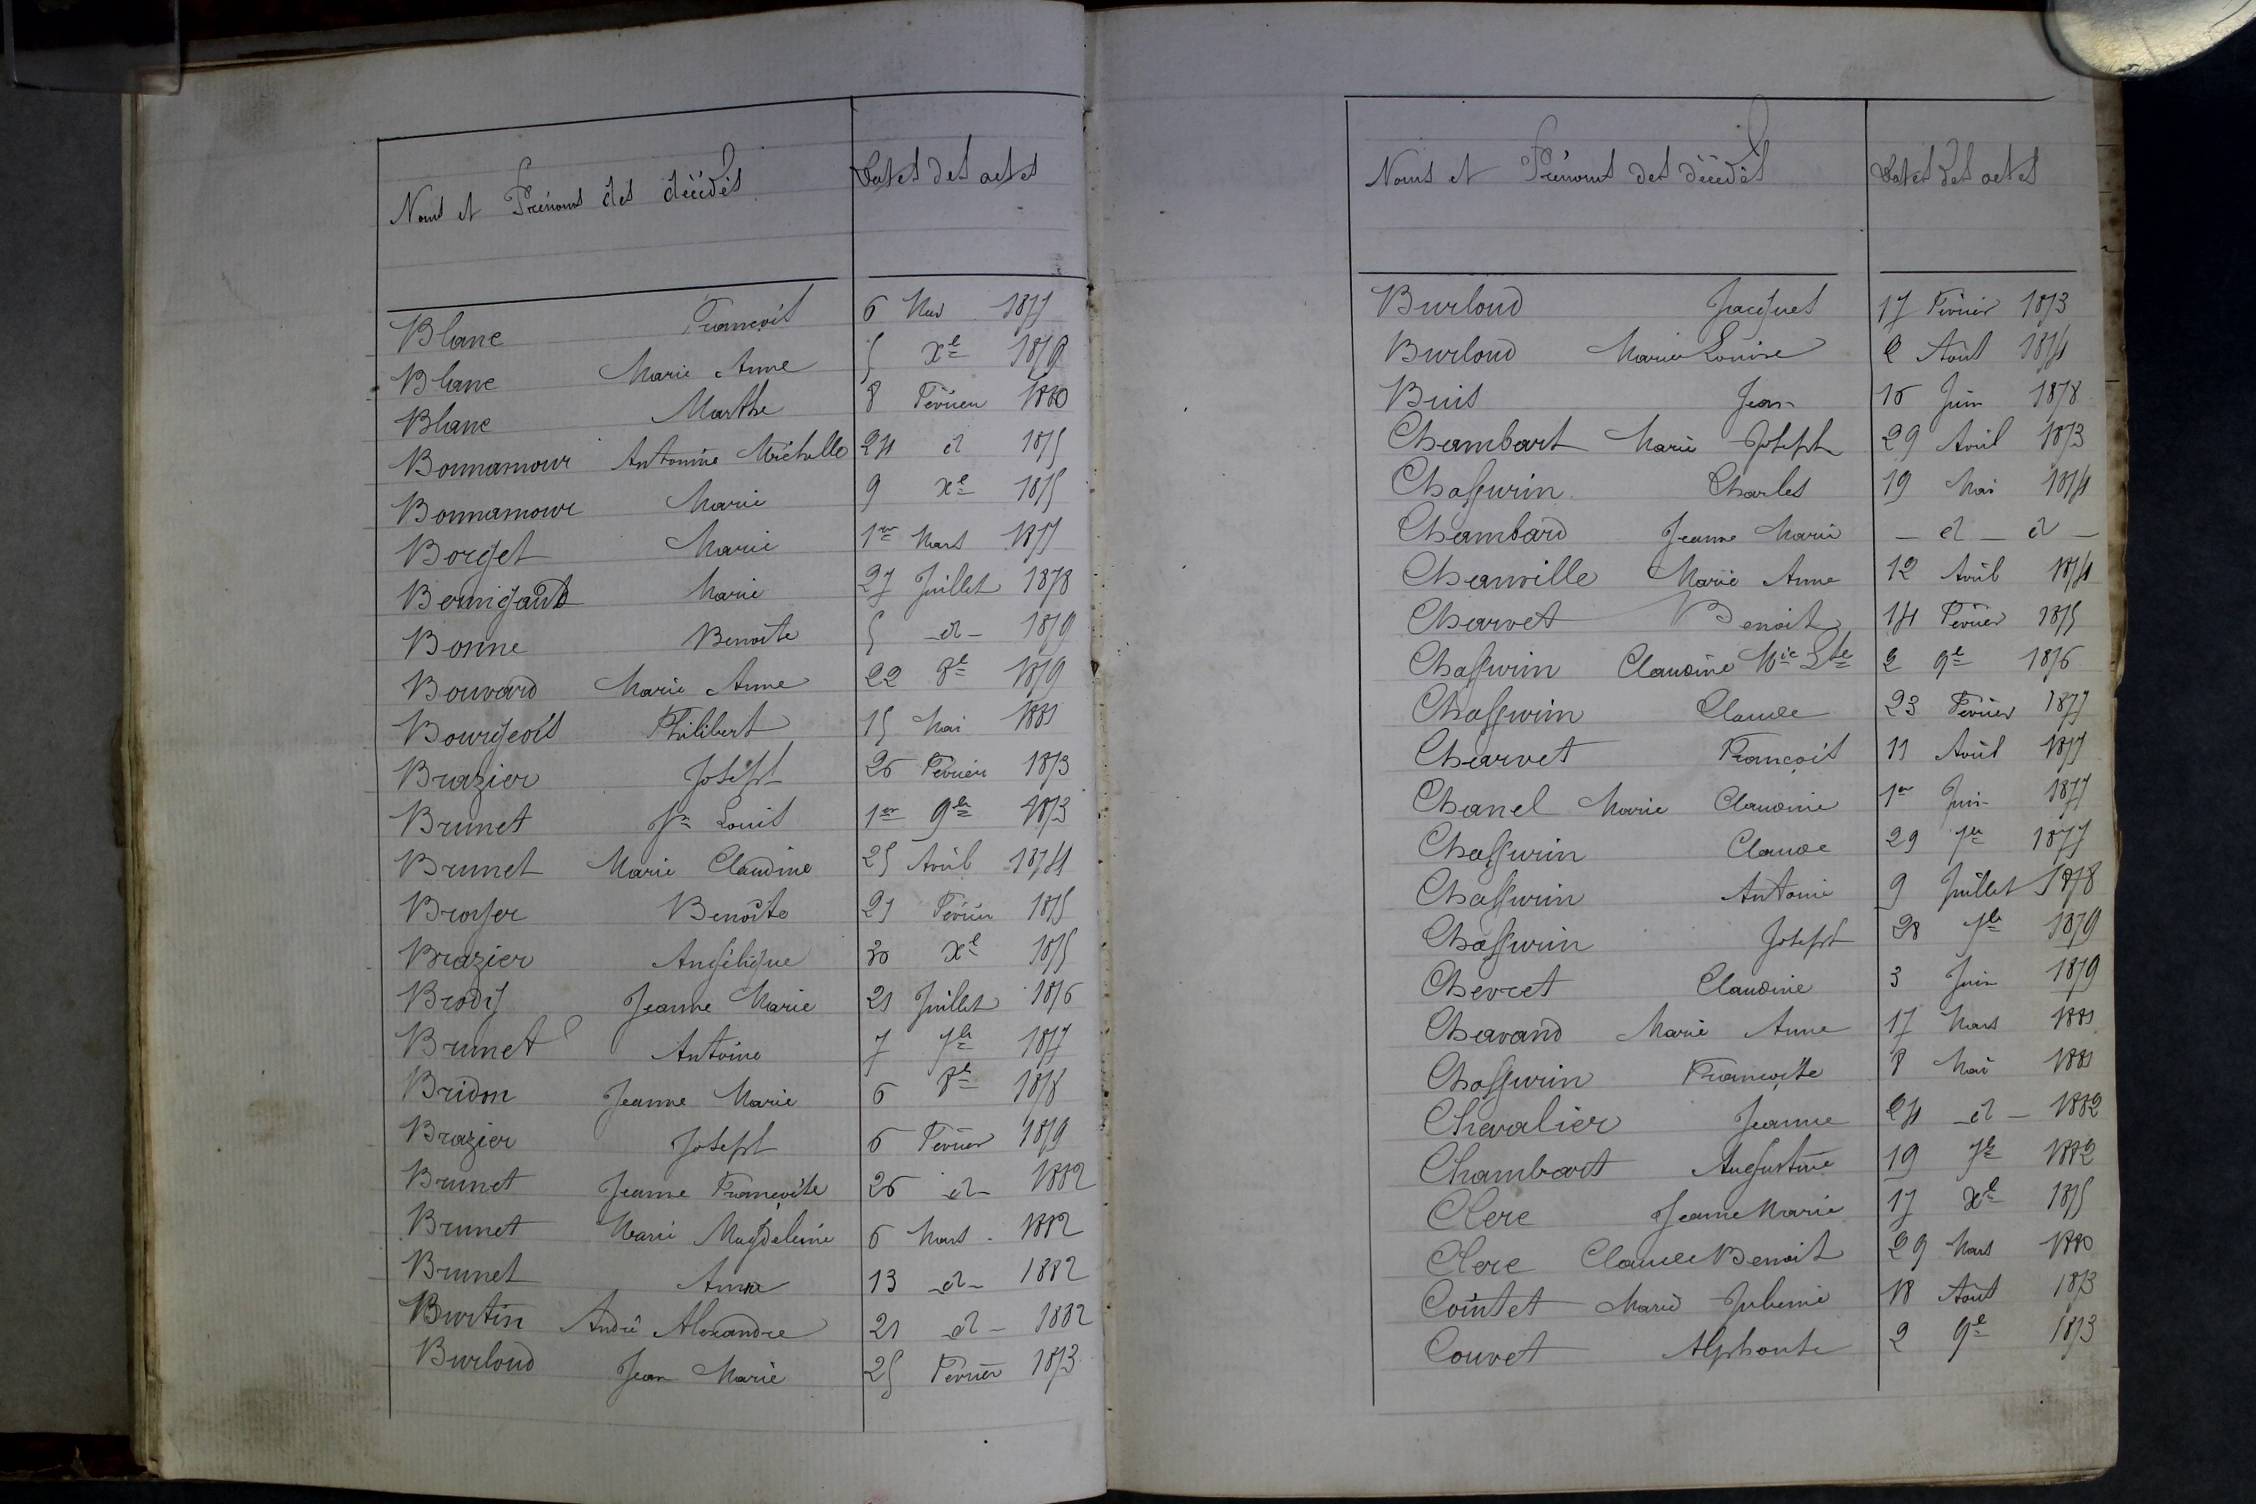 Noms et Prénoms des décédés Dates des actes
Blanc François 6 Mars 1877
Blanc Marie Anne 5 Xe 1879
Blanc Marthe 8 Février 1880
Bonnamour Antoinine Michelle 24 d 1875
Bonnamour Marie 9 Xe 1875
Borget Marie 1er Mars 1877
Bernigaud Marie 27 Juillet 1878
Bonne Benoite 5 -d- 1879
Bouvard Marie Anne 22 8e 1879
Bourgeois Philibert 15 Mai 1881
Brazier Joseph 26 Février 1873
Brunet Jn Louis 1er 9bre 1873
Brunet Marie Claudine 25 Avril 1874
Broyer Benoîte 21 Février 1875
Brazier Angélique 30 Xe 1875
Brody Jeanne Marie 21 Juillet 1876
Brunet Antoine 7 7bre 1877
Bridon Jeanne Marie 6 8e 1878
Brazier Joseph 6 Février 1879
Brunet Jeanne Françoise 26 -d- 1882
Brunet Marie Magdeleine 6 Mars 1882
Brunet Anne 13 -d- 1882
Burtin André Alexandre 21 -d- 1882
Burloud Jean Marie 25 Février 1873
Noms et Prénoms des décédés Dates des actes
Burloud Jacques 17 Février 1873
Burloud Marie Louise 2 Août 1874
Buis Jean 16 Juin 1878
Chambart Marie Joseph 29 Avril 1873
Chassurin Charles 19 Mai 1874
Chambard Jeanne Marie - d - d -
Chanville Marie Anne 12 Avril 1874
Charvet Benoit 14 Février 1875
Chassurin Claudine Mie Lse 2 9e 1876
Chassurin Claude 23 Février 1877
Charvet François 11 Avril 1877
Chanel Marie Claudine 1er Juin 1877
Chassurin Claude 29 7bre 1877
Chassurin Antoine 9 Juillet 1878
Chassurin Joseph 28 7bre 1879
Chevret Claudine 3 Juin 1879
Chavand Marie Anne 17 Mars 1881
Chassurin Françoise 8 Mai 1881
Chevalier Jeanne 24 -d- 1882
Chambart Augustine 19 7bre 1882
Clerc Jeanne Marie 17 Xe 1875
Clerc Claude Benoit 29 Mars 1880
Cointet Marie Julienne 18 Août 1873
Couvet Alphonse 2 9e 1873